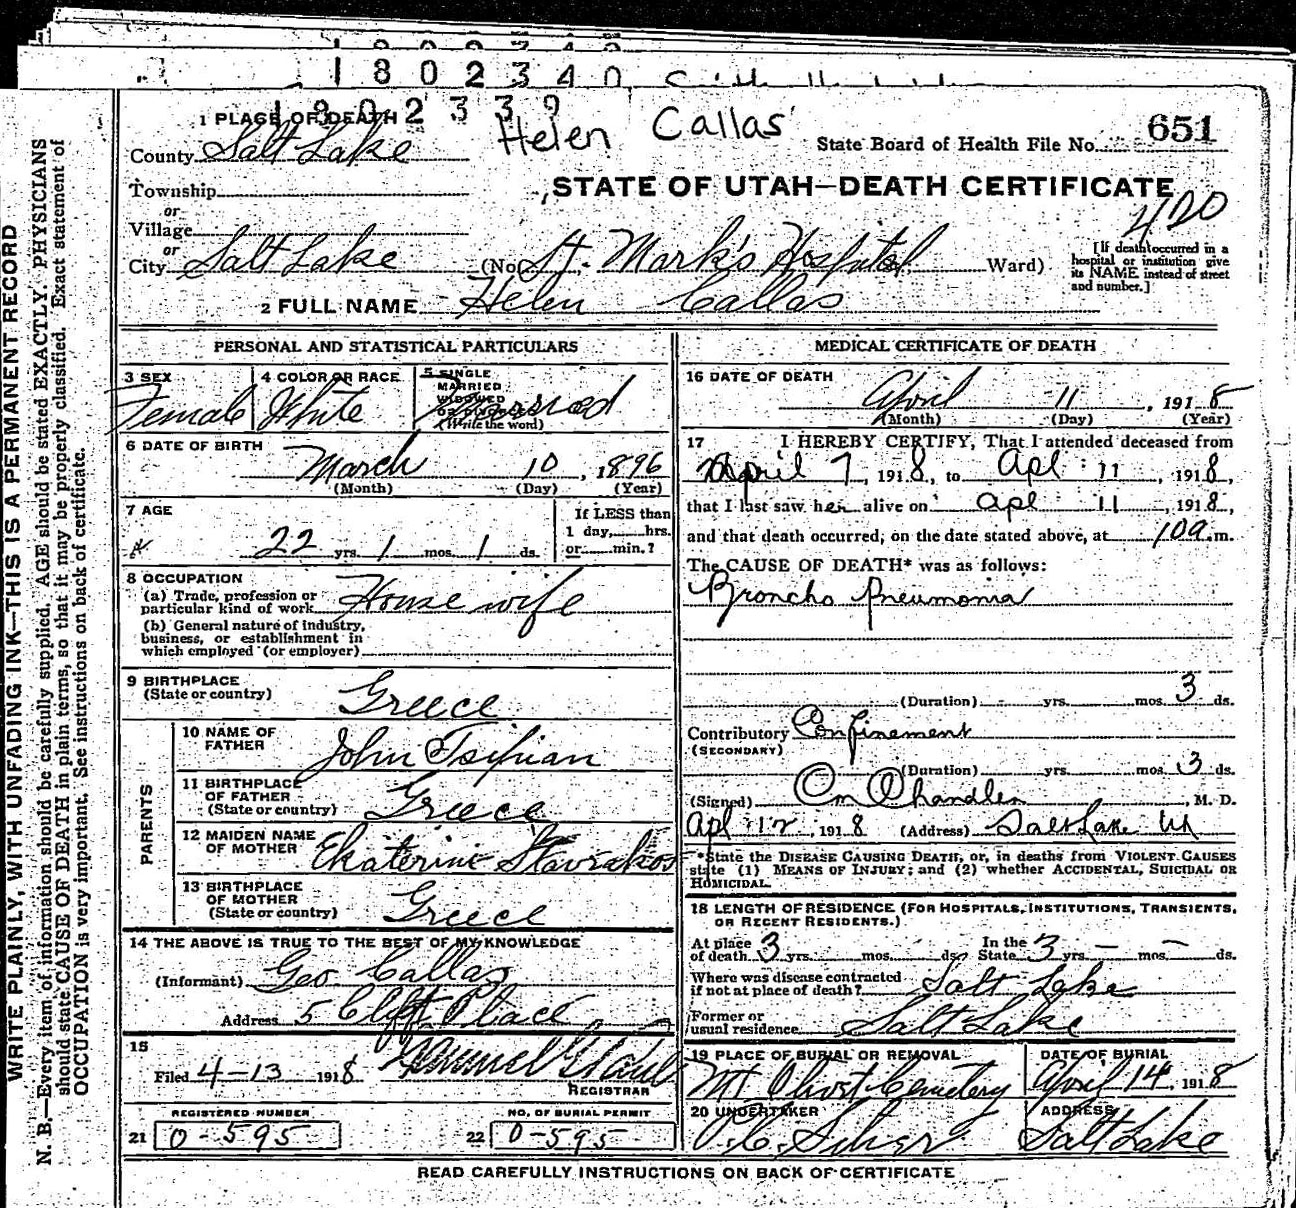 1802340
1802339
Helen Callas
1 PLACE OF DEATH
State Board of Health File No. 651
County Salt Lake
STATE OF UTAH—DEATH CERTIFICATE
Township
420
or
Village
or
City Salt Lake (No. St. Mark's Hospital Ward)
[If death occurred in a
hospital or institution give
its NAME instead of street
and number.]
2 FULL NAME Helen Callas
PERSONAL AND STATISTICAL PARTICULARS
3 SEX
Female
4 COLOR OR RACE
White
5 SINGLE
MARRIED
WIDOWED
OR DIVORCED
(Write the word)
Married
6 DATE OF BIRTH
March 10, 1896
(Month) (Day) (Year)
7 AGE
22 yrs. 1 mos. 1 ds.
If LESS than
1 day, hrs.
or min.?
8 OCCUPATION
(a) Trade, profession or
particular kind of work House wife
(b) General nature of industry,
business, or establishment in
which employed (or employer)
9 BIRTHPLACE
(State or country) Greece
PARENTS
10 NAME OF
FATHER John
11 BIRTHPLACE
OF FATHER
(State or country) Greece
12 MAIDEN NAME
OF MOTHER Ekaterini Stavrakos
13 BIRTHPLACE
OF MOTHER
(State or country) Greece
14 THE ABOVE IS TRUE TO THE BEST OF MY KNOWLEDGE
(Informant) Geo Callas
Address 5 Clift Place
15
Filed 4-13 1918
REGISTRAR
REGISTERED NUMBER
21 0-595
NO. OF BURIAL PERMIT
22 0-595
MEDICAL CERTIFICATE OF DEATH
16 DATE OF DEATH
April 11, 1918
(Month) (Day) (Year)
17 I HEREBY CERTIFY, That I attended deceased from
April 7, 1918, to Apl 11, 1918,
that I last saw her alive on Apl 11, 1918,
and that death occurred, on the date stated above, at 10a.m.
The CAUSE OF DEATH* was as follows:
Broncho Pneumonia
(Duration) yrs. mos. 3 ds.
Contributory Confinement
(SECONDARY)
(Duration) yrs. mos. 3 ds.
(Signed) Chandler, M. D.
Apl 12, 1918 (Address) Salt Lake Ut
*State the DISEASE CAUSING DEATH, or, in deaths from VIOLENT CAUSES
state (1) MEANS OF INJURY; and (2) whether ACCIDENTAL, SUICIDAL OR
HOMICIDAL.
18 LENGTH OF RESIDENCE (FOR HOSPITALS, INSTITUTIONS, TRANSIENTS,
OR RECENT RESIDENTS.)
At place
of death 3 yrs. mos. ds.
In the
State 3 yrs. — mos. — ds.
Where was disease contracted
if not at place of death? Salt Lake
Former or
usual residence Salt Lake
19 PLACE OF BURIAL OR REMOVAL
Mt Olivet Cemetery
DATE OF BURIAL
April 14, 1918
20 UNDERTAKER
ADDRESS
Salt Lake
READ CAREFULLY INSTRUCTIONS ON BACK OF CERTIFICATE
WRITE PLAINLY, WITH UNFADING INK—THIS IS A PERMANENT RECORD
N. B.—Every item of information should be carefully supplied. AGE should be stated EXACTLY. PHYSICIANS
should state CAUSE OF DEATH in plain terms, so that it may be properly classified. Exact statement of
OCCUPATION is very important. See instructions on back of certificate.